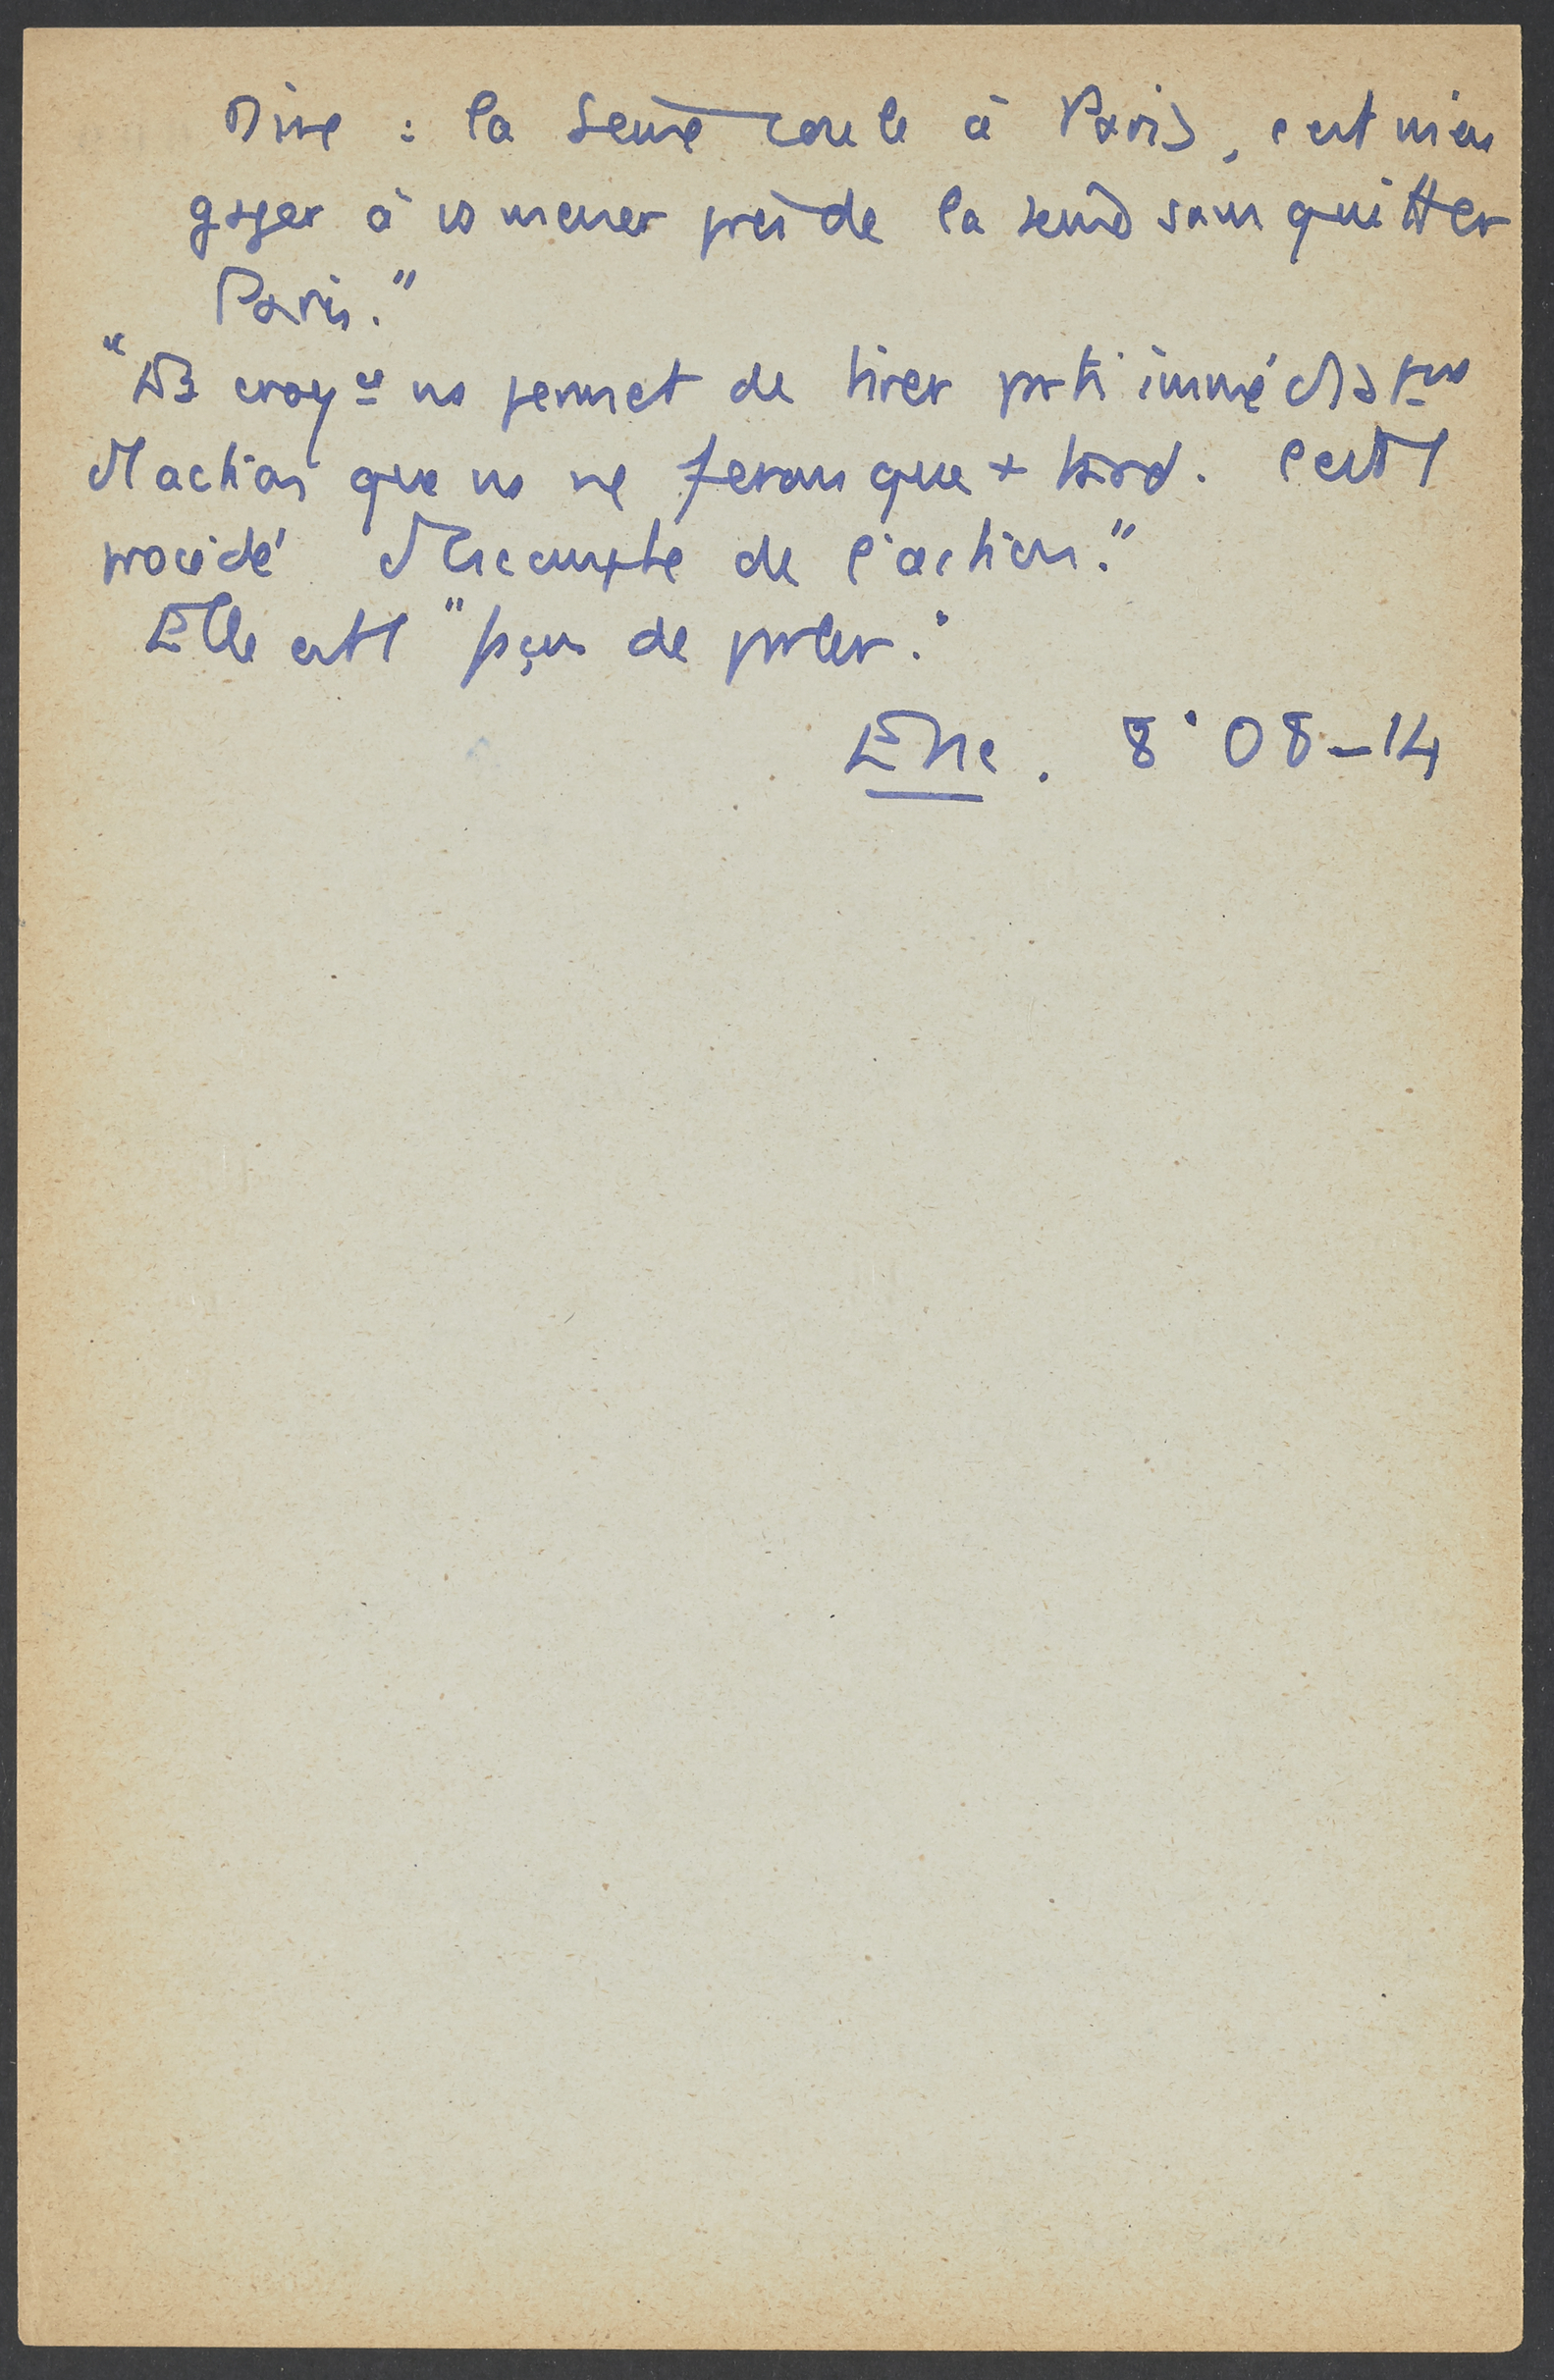 Dire : la Seine coule à Paris, c'est m'en
gager à vs mener près de la Seine sans quitter
Paris."
"La croyce ns permet de tirer parti immédiatmt
d'action que ns ne ferons que + tard. C'est 1
procédé d'escompte de l'action."
Elle est 1 "façon de parler."
8° 08-14